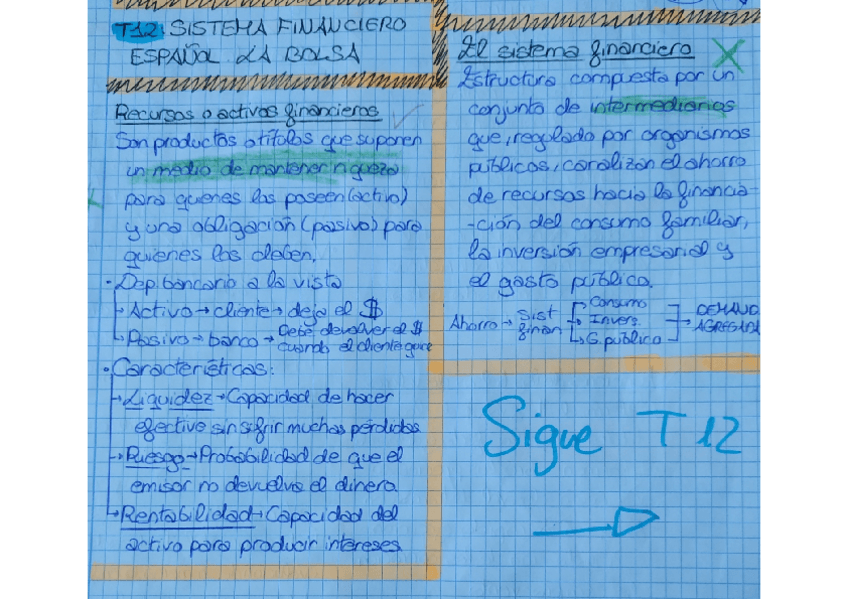 T12: SISTEMA FINANCIERO
ESPAÑOL LA BOLSA
Recursos o activos financieros
Son productos o títulos que suponen
un medio de mantener riqueza
para quienes los poseen (activo)
y una obligación (pasivo) para
quienes los deben.
· Dep. bancario a la vista
Activo → cliente → deja el $
Pasivo → banco → Debe devolver el $
cuando el cliente quiere
· Características:
Liquidez → Capacidad de hacer
efectivo sin sufrir muchas pérdidas
Riesgo → Probabilidad de que el
emisor no devuelva el dinero
Rentabilidad → Capacidad del
activo para producir intereses
El sistema financiero
Estructura compuesta por un
conjunto de intermediarios
que, regulado por organismos
públicos, canalizan el ahorro
de recursos hacia la financia-
-ción del consumo familiar,
la inversión empresarial y
el gasto público.
Ahorro → Sist finan
→ Consumo
→ Invers.
→ G. público
→ DEMANDA
AGREGADA
Sigue T12